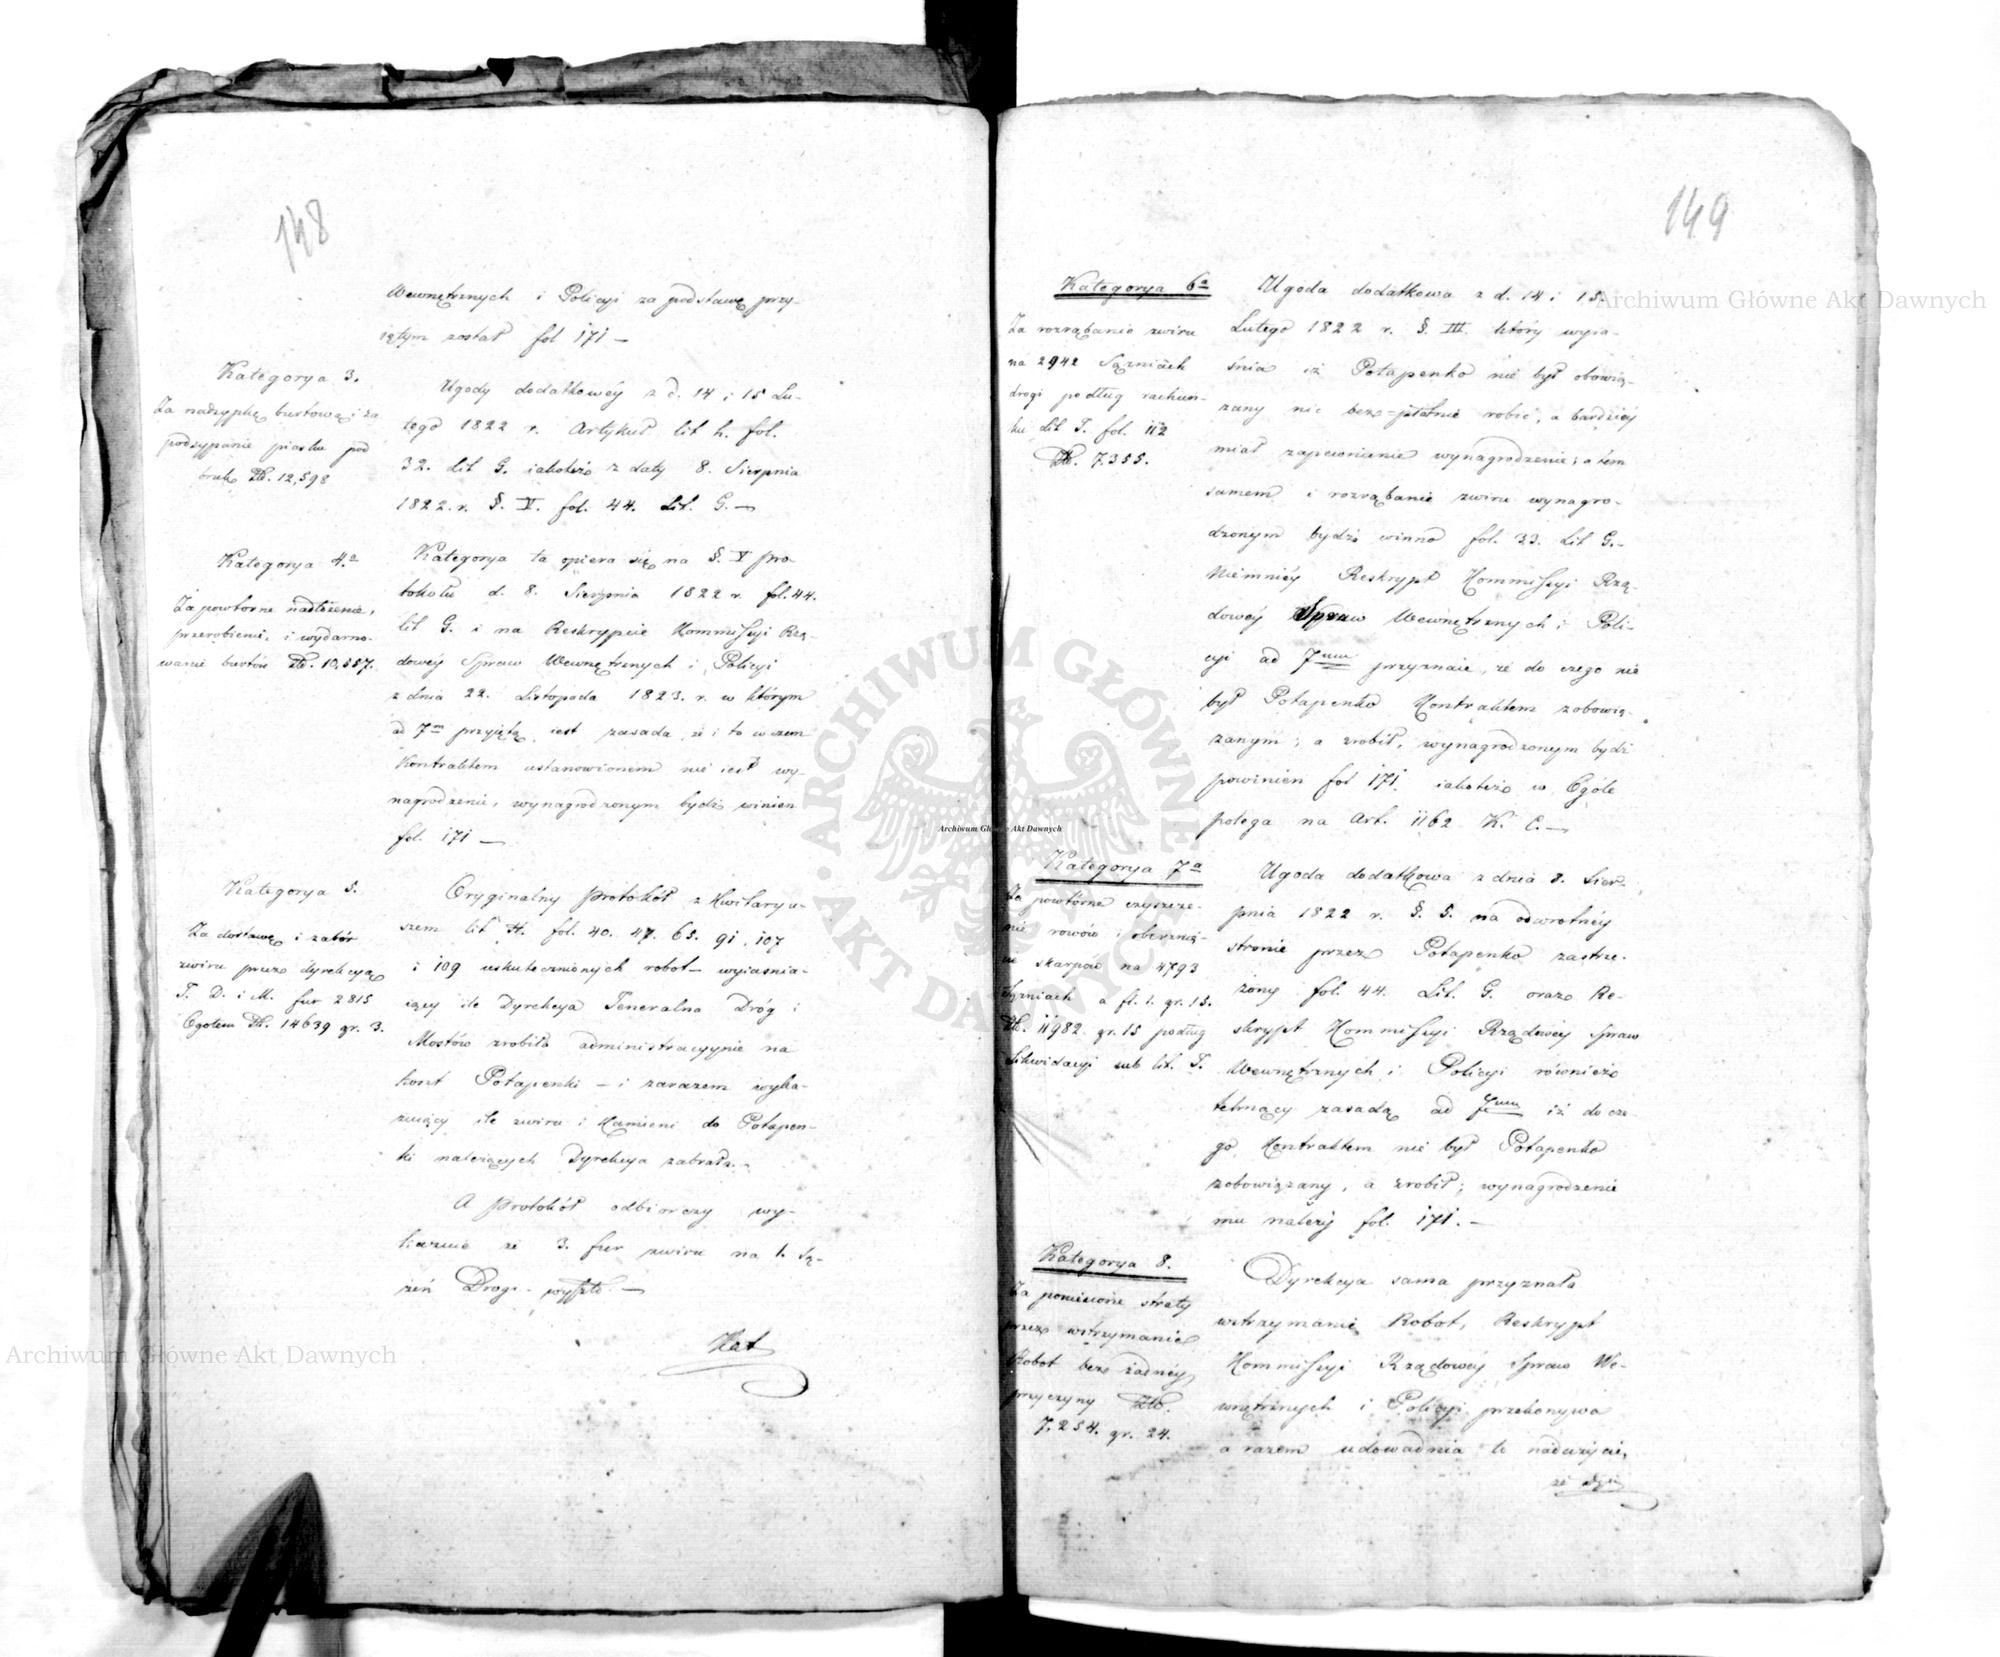 148
Wewnętrznych i Policyi za podstawę przy-
iętym został fol 171 —
Kategorya 3.
Za nadsypkę burtową i za
podsypanie piasku pod
bruk Zł. 12,598
Ugody dodatkowéy z d. 14 i 15 Lu-
tego 1822 r. Artykuł lit h. fol.
32. Lit G. iakoteż z daty 8. Sierpnia
1822. r. §. V. fol. 44. Lit. G. —
Kategorya 4.a
Za powtorne
przerobienie, i wydarno-
wanie burtów Zł. 10,557.
Kategorya ta opiera się na §. V pro-
tokołu d. 8. Sierpnia 1822 r. fol. 44.
lit G. i na Reskrypcie Kommissyi Rzą-
dowéy Spraw Wewnętrznych i Policyi
z dnia 22. Listopada 1823. r. w którym
ad 7m przyjętą iest zasada, że i to w czem
Kontraktem ustanowionem nie iest wy-
nagrodzenie, wynagrodzonym bydź winien
fol. 171 —
Kategorya 5.
Za dostawę i zabór
żwiru przez dyrekcyą
J. D. i M. fur 2815
Ogółem Zł. 14639 gr. 3.
Oryginalny Protokół z Kwitaryu-
szem lit H. fol. 40. 47. 65. 91. 107
i 109 uskutecznionych robot — wyiaśnia-
iący ile Dyrekcya Jeneralna Dróg i
Mostów zrobiła administracyynie na
kont Potapenki — i zarazem wyka-
zuiący ile żwiru i Kamieni do Potapen-
ki należących Dyrekcya zabrała. —
A Protokół odbiorczy wy-
kazuie że 3. fur żwiru na 1. Są-
żeń Drogi wyszło. —
Kat
149
Kategorya 6a
Za rozrąbanie żwiru
na 2942 Sążniach
drogi podług rachun-
ku Lit J. fol. 112
Zł. 7.355.
Ugoda dodatkowa z d. 14 i 15
Lutego 1822 r. §. III. który wyia-
śnia iż Potapenko nie był obowią-
zany nic bez=płatnie robić, a bardziéy
miał zapewnienie wynagrodzenie; a tém
samem i rozrąbanie żwiru wynagro-
dzonym bydź winno fol. 33. Lit G. —
Niemniéy Reskrypt Kommissyi Rzą-
dowéy Spraw Wewnętrznych i Poli-
cyi ad 7mum przyznaie, że do czego nie
był Potapenko Kontraktem zobowią-
zanym; a zrobił, wynagrodzonym bydź
powinien fol 171. iakoteż w Ogóle
polega na Art. 1162 K. C. —
Kategorya 7a
Za powtórne czyszcze-
nie rowów i oberznię-
cie skarpów na 4793
Sążniach a fl. 1. gr. 15.
Zł. 11982. gr. 15 podług
Likwidacyi sub lit. J.
Ugoda dodatkowa z dnia 8. Sier-
pnia 1822 r. §. 5. na odwrotnéy
stronie przez Potapenko zastrze-
żony fol. 44. Lit. G. oraz Re-
skrypt Kommissyi Rządowéy Spraw
Wewnętrznych i Policyi również
tchnący zasadą ad 7mum iż do cze-
go Kontraktem nie był Potapenko
zobowiązany, a zrobił; wynagrodzenie
mu należy fol. 171. —
Kategorya 8.
Za poniesione straty
przez wstrzymanie
Robot bez żadnéy
przyczyny Zło.
7,254. gr. 24.
Dyrekcya sama przyznała
wstrzymanie Robot, Reskrypt
Kommissyi Rządowéy Spraw We-
wnętrznych i Policyi przekonywa
a razem udowadnia te nadużycie,
że
Archiwum Główne Akt Dawnych
Archiwum Główne Akt Dawnych
Archiwum Główne Akt Dawnych
ARCHIWUM GŁÓWNE • AKT DAWNYCH •